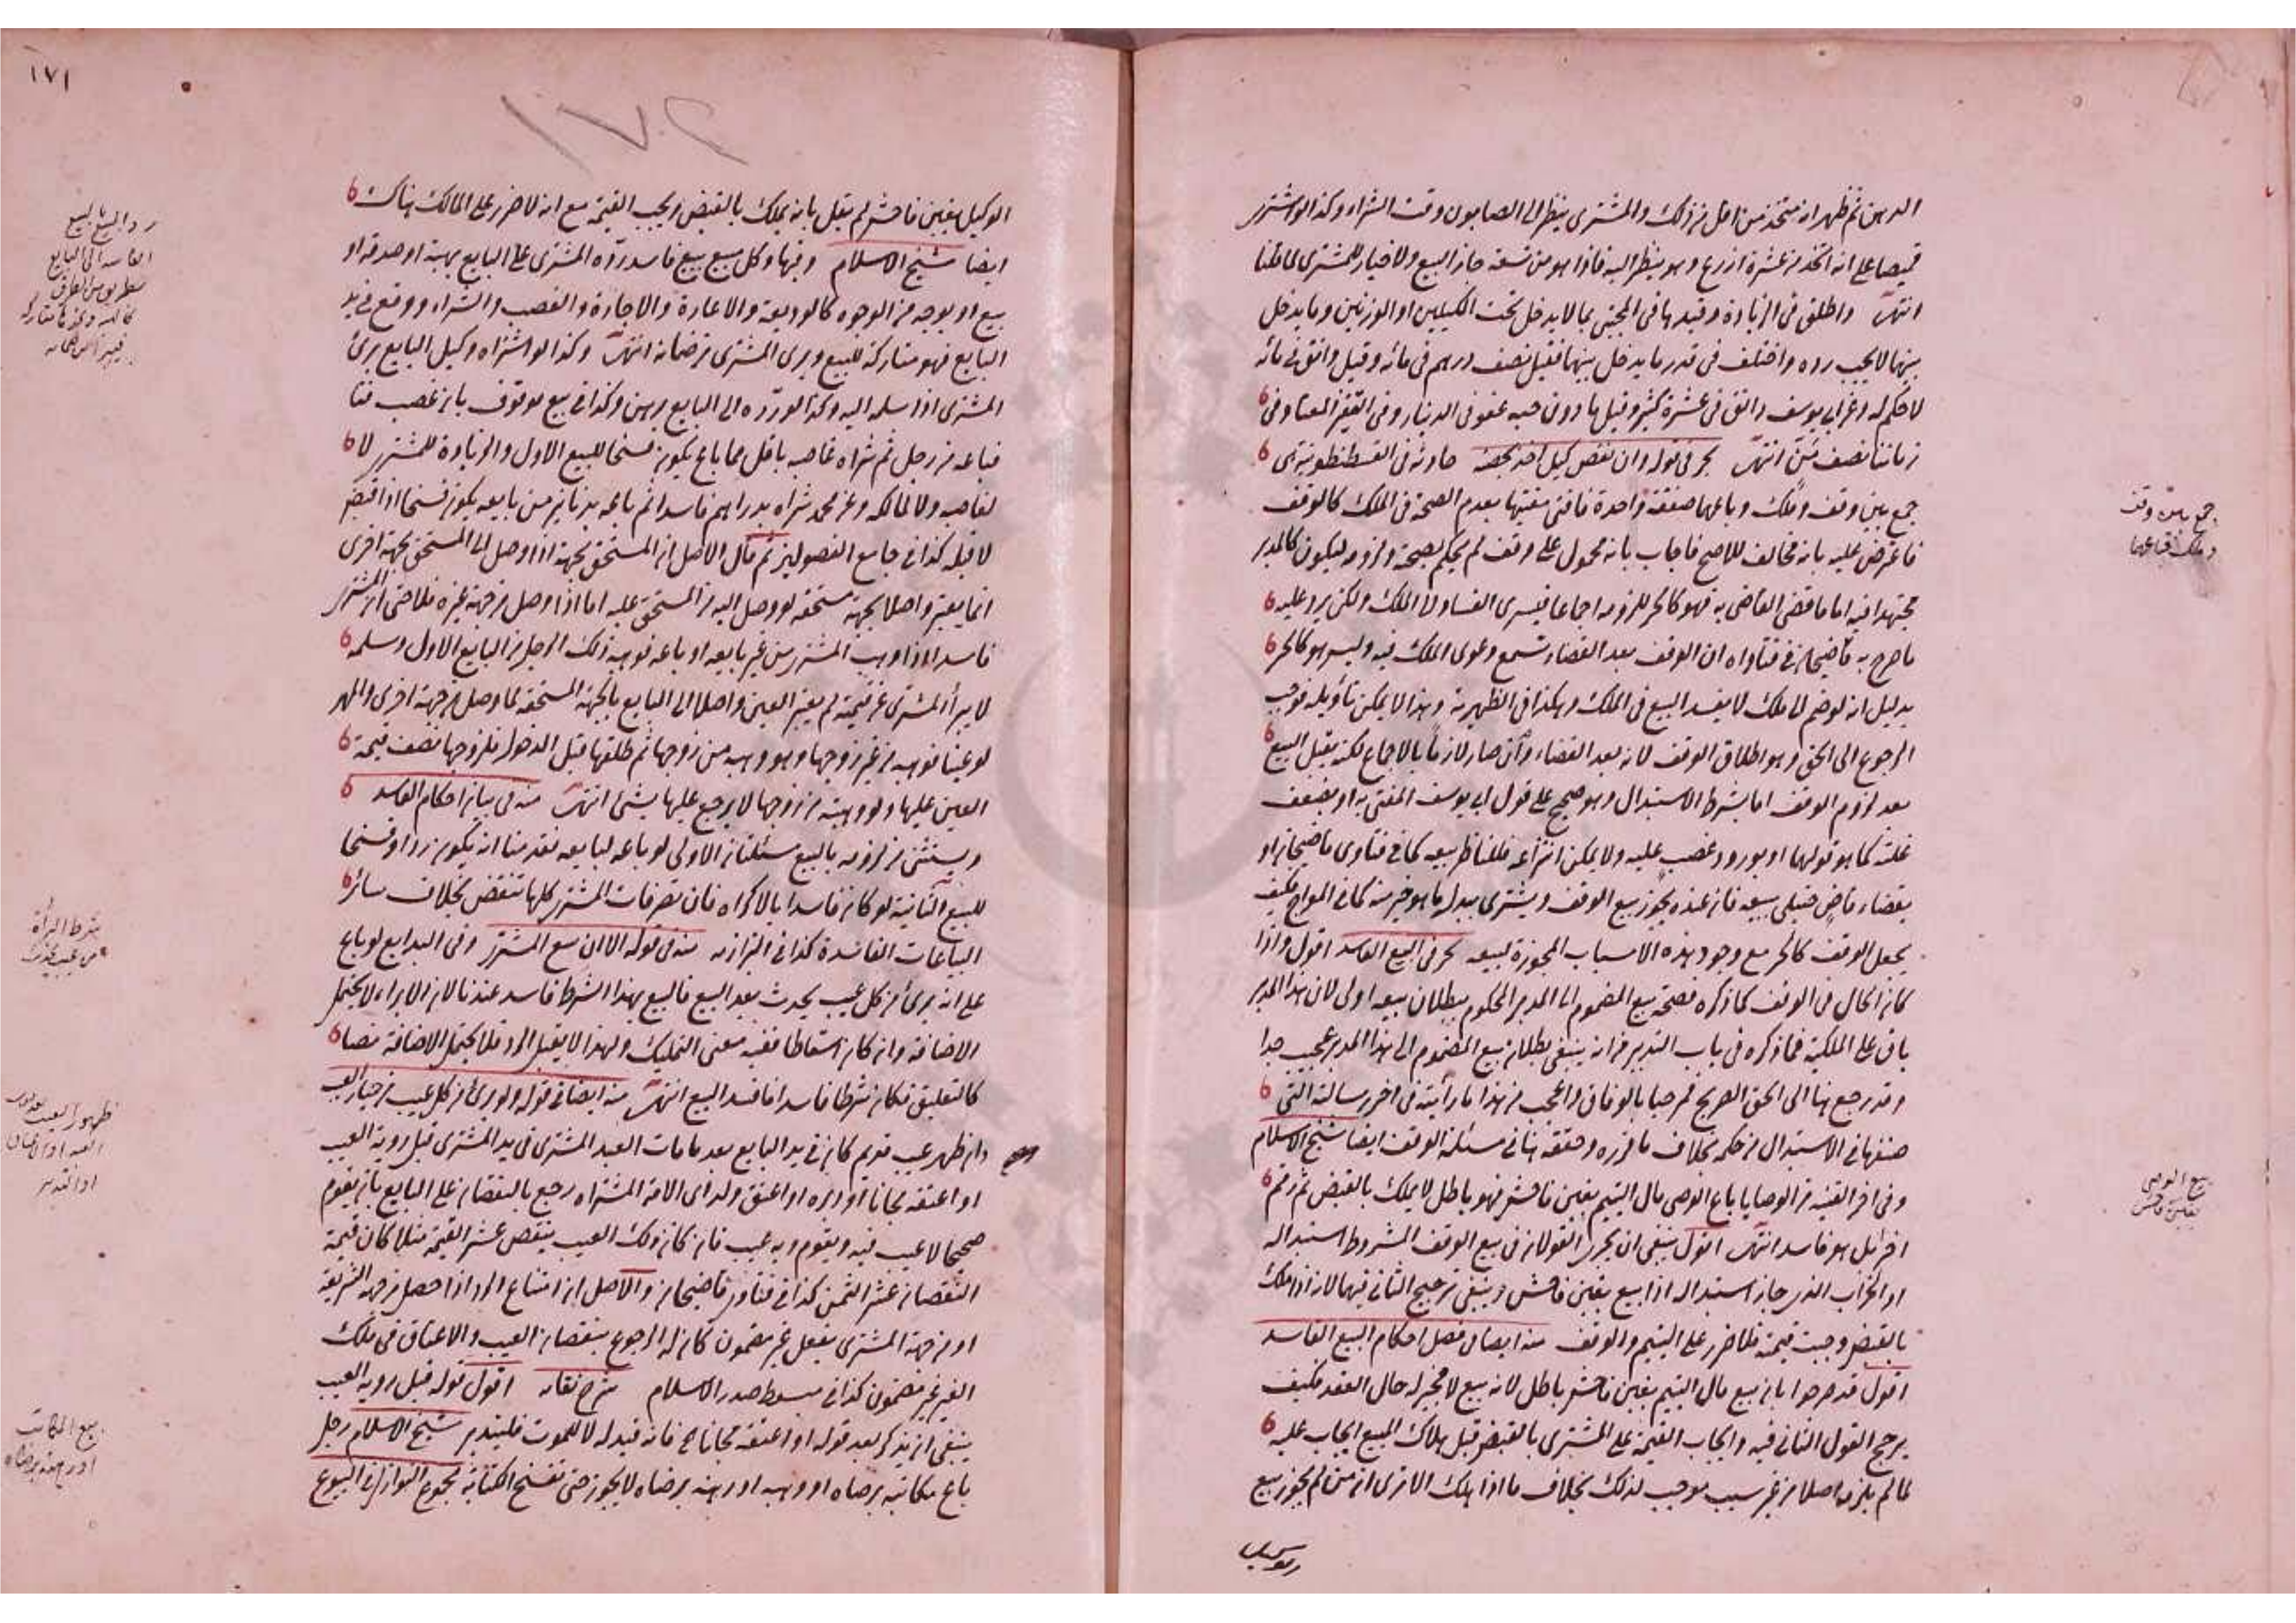 الدهن ثم ظهر انه متخذ من اقل من ذلك والمشترى ينظر الى الصابون وقت الشراء وكذا لو اشترى
قميصا على انه اتخذ من عشرة اذرع وهو ينظر اليه فاذا هو من تسعة جاز البيع ولا خيار للمشترى لما قلنا
انتهى واطلق فى الزيادة وقيدها فى المجتبى بما لا يدخل تحت الكيلين او الوزنين وما يدخل
بينهما لا يجب رده واختلف فى قدر ما يدخل بينهما فقيل نصف درهم فى مائة وقيل دانق فى مائة
لا حكم له وعن ابى يوسف دانق فى عشرة كثير وقيل ما دون حبة عفو فى الدينار وفى القفيز المعتاد فى
زماننا نصف من انتهى بحر فى قوله وان نقص كيل اخذ بحصته حادثة فى القسطنطونية
جمع بين وقف وملك وباعهما صفقة واحدة فافتى مفتيها بعدم الصحة فى الملك كالوقف
فاعترض عليه بانه مخالف للاصح فاجاب بانه محمول على وقف لم يحكم بصحته ولزومه ليكون كالمدبر
مجتهدا فيه اما ما قضى القاضى به فهو كالحر للزومه اجماعا فيسرى الفساد الى الملك ولكن يرد عليه
ما صرح به قاضيخان فى فتاواه ان الوقف بعد القضاء تسمع دعوى الملك فيه وليس هو كالحر
بدليل انه لو ضم الى ملك لا يفسد البيع فى الملك وهكذا فى الظهيرية وهذا لا يمكن تأويله فوجب
الرجوع الى الحق وهو اطلاق الوقف لانه بعد القضاء وان صار لازما بالاجماع لكنه يقبل البيع
بعد لزوم الوقف اما بشرط الاستبدال وهو صحيح على قول ابى يوسف المفتى به او بضعف
غلته كما هو قولهما او بورود غصب عليه ولا يمكن انتزاعه فللناظر بيعه كما فى فتاوى قاضيخان او
بقضاء قاض حنبلى ببيعه فان عنده يجوز بيع الوقف ويشترى ببدله ما هو خير منه كما فى المعراج فكيف
يجعل الوقف كالحر مع وجود هذه الاسباب المجوزة لبيعه بحر فى البيع الفاسد اقول واذا
كان الحال فى الوقف كما ذكره فصحة بيع المضموم الى المدبر المحكوم ببطلان بيعه اولى لان هذا المدبر
باق على الملكية فما ذكره فى باب التدبير من انه ينبغى بطلان بيع المضموم الى هذا المدبر عجيب جدا
وقد رجع هنا الى الحق الصريح فمرحبا بالوفاق واعجب من هذا ما رأيته فى اخر رسالته التى
صنفها فى الاستبدال من حكمه بخلاف ما قرره وحققه هنا فى مسئلة الوقف ايضا شيخ الاسلام
وفى اخر القنية من الوصايا باع الوصى مال اليتيم بغبن فاحش فهو باطل لا يملك بالقبض ثم رقم
اخر بل هو فاسد انتهى اقول ينبغى ان يجرى القولان فى بيع الوقف المشروط استبداله
او الخراب الذى جاز استبداله اذا بيع بغبن فاحش وينبغى ترجيح الثانى فيهما لانه اذا ملك
بالقبض وجبت قيمته فلا ضرر على اليتيم والوقف منه ايضا فى فصل احكام البيع الفاسد
اقول قد صرحوا بان بيع مال اليتيم بغبن فاحش باطل لانه بيع لا مجيز له حال العقد فكيف
يرجح القول الثانى فيه وايجاب القيمة على المشترى بالقبض قبل هلاك المبيع ايجاب عليه
لما لم يلزمه اصلا من غير سبب موجب لذلك بخلاف ما اذا هلك الا ترى ان من لم يجوز بيع
جمع بين وقف
وملك فباعهما
بيع الوصى
بغبن فاحش
١٧١
١٧٢
الوكيل بغبن فاحش لم يقل بانه يملك بالقبض ويجب القيمة مع انه لا ضرر على المالك هناك
ايضا شيخ الاسلام وفيها وكل مبيع بيع فاسد رده المشترى على البايع بهبة او صدقة او
بيع او بوجه من الوجوه كالوديعة والاعارة والاجارة والغصب والشراء ووقع فى يد
البايع فهو متاركة للبيع وبرى المشترى من ضمانه انتهى وكذا لو اشتراه وكيل البايع برئ
المشترى اذا سلمه اليه وكذا لو رده الى البايع برهن وكذا فى بيع موقوف بان غصب قنا
فباعه من رجل ثم شراه غاصبه باقل مما باع يكون فسخا للبيع الاول والزيادة للمشترى لا
لغاصبه ولا لمالكه وعن محمد شراه بدراهم فاسدا ثم باعه بدنانير من بايعه يكون فسخا اذا قبضه
لا قبله كذا فى جامع الفصولين ثم قال الاصل ان المستحق بجهة اذا وصل الى المستحق بجهة اخرى
انما يعتبر واصلا بجهة مستحقه لو وصل اليه من المستحق عليه اما اذا وصل من جهة غيره فلا حتى ان المشترى
فاسدا اذا وهب المشترى من غير بايعه او باعه فوهبه ذلك الرجل من البايع الاول وسلمه
لا يبرأ المشترى عن قيمته لم يعتبر العين واصلا الى البايع بالجهة المستحقة لما وصل من جهة اخرى والمهر
لو عينا فوهبه من غير زوجها وهو وهبه من زوجها ثم طلقها قبل الدخول فلزوجها نصف قيمة
العين عليها ولو وهبته من زوجها لا يرجع عليها بشئ انتهى منه فى بيان احكام الفاسد
ويستثنى من لزومه بالبيع مسئلتان الاولى لو باعه لبايعه فقدمنا انه يكون ردا وفسخا
للبيع والثانية لو كان فاسدا بالاكراه فان تصرفات المشترى كلها تنقض بخلاف سائر
البياعات الفاسدة كذا فى البزازية منه فى قوله الا ان يبيع المشترى وفى البدايع لو باع
على انه برئ من كل عيب يحدث بعد البيع فالبيع بهذا الشرط فاسد عندنا لان الابراء لا يحتمل
الاضافة وان كان اسقاطا ففيه معنى التمليك ولهذا لا يقبل الرد فلا يحتمل الاضافة نصا
كالتعليق فكان شرطا فاسدا فافسد البيع انتهى منه ايضا فى قوله ولو برئ من كل عيب من خيار العيب
وان ظهر عيب قديم كان فى يد البايع بعد ما مات العبد المشترى فى يد المشترى قبل روية العيب
او اعتقه مجانا او دبره او اعتق ولد اى الامة المشتراه رجع بالنقصان على البايع بان يقوم
صحيحا لا عيب فيه ويقوم وبه عيب فان كان ذلك العيب ينقص عشر القيمة مثلا كان قيمة
النقصان عشر الثمن كذا فى فتاوى قاضيخان والاصل ان امتناع الرد اذا حصل من جهة الشريعة
او من جهة المشترى بفعل غير مضمون كان له الرجوع بنقصان العيب والاعتاق فى ملك
الغير غير مضمون كذا فى مبسوط صدر الاسلام شرح نقايه اقول قوله قبل روية العيب
ينبغى ان يذكر بعد قوله او اعتقه مجانا فانه قيد له لا للموت فليتدبر شيخ الاسلام رجل
باع مكاتبه برضاه او وهبه او رهنه برضاه لا يجوز حتى تفسخ الكتابة مجموع النوازل فى البيوع
رد المبيع بالبيع
الفاسد الى البايع
بطريق من الطرق
بشرط البرأة
من عيب يحدث
ظهور العيب بعد موت
العبد او الاعتاق
او التدبير
بيع المكاتب
او رهنه برضاه